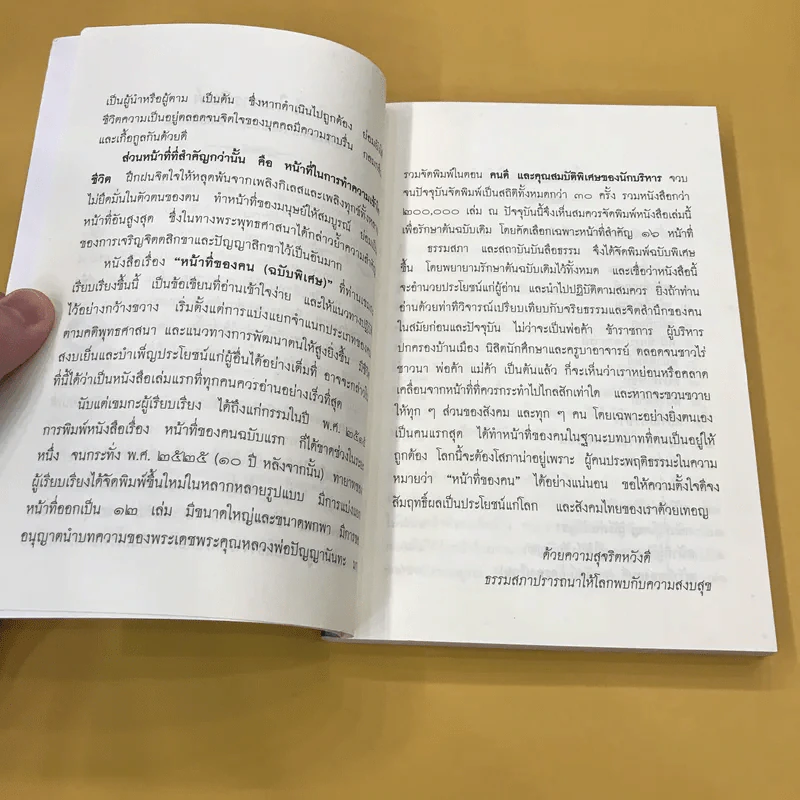 เป็นผู้นำหรือผู้ตาม เป็นต้น ซึ่งหากดำเนินไปถูกต้อง
ชีวิตความเป็นอยู่ตลอดจนจิตใจของบุคคลมีความราบรื่น
และเกื้อกูลกันด้วยดี
ส่วนหน้าที่ที่สำคัญกว่านั้น คือ หน้าที่ในการทำความ
ชีวิต ฝึกฝนจิตใจให้หลุดพ้นจากเพลิงกิเลสและเพลิงทุกข์
ไม่ยึดมั่นในตัวตนของตน ทำหน้าที่ของมนุษย์ให้สมบูรณ์
หน้าที่อันสูงสุด ซึ่งในทางพระพุทธศาสนาได้กล่าวย้ำความสำคัญ
ของการเจริญจิตตสิกขาและปัญญาสิกขาไว้เป็นอันมาก
หนังสือเรื่อง “หน้าที่ของคน (ฉบับพิเศษ)” ที่ท่าน
เรียบเรียงขึ้นนี้ เป็นข้อเขียนที่อ่านเข้าใจง่าย และให้แนวทาง
ไว้อย่างกว้างขวาง เริ่มตั้งแต่การแบ่งแยกจำแนกประเภทของ
ตามคติพุทธศาสนา และแนวทางการพัฒนาตนให้สูงยิ่งขึ้น
สงบเย็นและบำเพ็ญประโยชน์แก่ผู้อื่นได้อย่างเต็มที่
ที่นี้ได้ว่าเป็นหนังสือเล่มแรกที่ทุกคนควรอ่านอย่างเร็วที่สุด
นับแต่เขมกะผู้เรียบเรียง ได้ถึงแก่กรรมในปี พ.ศ.
การพิมพ์หนังสือเรื่อง หน้าที่ของคนฉบับแรก ก็ได้ขาดช่วงใน
หนึ่ง จนกระทั่ง พ.ศ. ๒๕๒๕ (๑๐ ปี หลังจากนั้น)
ผู้เรียบเรียงได้จัดพิมพ์ขึ้นใหม่ในหลากหลายรูปแบบ มีการ
หน้าที่ออกเป็น ๑๒ เล่ม มีขนาดใหญ่และขนาดพกพา
อนุญาตนำบทความของพระเดชพระคุณหลวงพ่อปัญญานันทะ
รวมจัดพิมพ์ในตอน คนดี และคุณสมบัติพิเศษของนักบริหาร จวบ
จนปัจจุบันจัดพิมพ์เป็นสถิติทั้งหมดกว่า ๓๐ ครั้ง รวมหนังสือกว่า
๒๐๐,๐๐๐ เล่ม ณ ปัจจุบันนี้จึงเห็นสมควรจัดพิมพ์หนังสือเล่มนี้
เพื่อรักษาต้นฉบับเดิม โดยคัดเลือกเฉพาะหน้าที่สำคัญ ๑๖ หน้าที่
ธรรมสภา และสถาบันบันลือธรรม จึงได้จัดพิมพ์ฉบับพิเศษ
ขึ้น โดยพยายามรักษาต้นฉบับเดิมไว้ทั้งหมด และเชื่อว่าหนังสือนี้
จะอำนวยประโยชน์แก่ผู้อ่าน และนำไปปฏิบัติตามสมควร ยิ่งถ้าท่าน
อ่านด้วยท่าทีวิจารณ์เปรียบเทียบกับจริยธรรมและจิตสำนึกของคน
ในสมัยก่อนและปัจจุบัน ไม่ว่าจะเป็นพ่อค้า ข้าราชการ ผู้บริหาร
ปกครองบ้านเมือง นิสิตนักศึกษาและครูบาอาจารย์ ตลอดจนชาวไร่
ชาวนา พ่อค้า แม่ค้า เป็นต้นแล้ว ก็จะเห็นว่าเราหย่อนหรือคลาด
เคลื่อนจากหน้าที่ที่ควรกระทำไปไกลสักเท่าใด และหากจะชวนขวาย
ให้ทุก ๆ ส่วนของสังคม และทุก ๆ คน โดยเฉพาะอย่างยิ่งตนเอง
เป็นคนแรกสุด ได้ทำหน้าที่ของคนในฐานะบทบาทที่ตนเป็นอยู่ให้
ถูกต้อง โลกนี้จะต้องโสภาน่าอยู่เพราะ ผู้คนประพฤติธรรมะในความ
หมายว่า “หน้าที่ของคน” ได้อย่างแน่นอน ขอให้ความตั้งใจดีจง
สัมฤทธิ์ผลเป็นประโยชน์แก่โลก และสังคมไทยของเราด้วยเทอญ
ด้วยความสุจริตหวังดี
ธรรมสภาปรารถนาให้โลกพบกับความสงบสุข